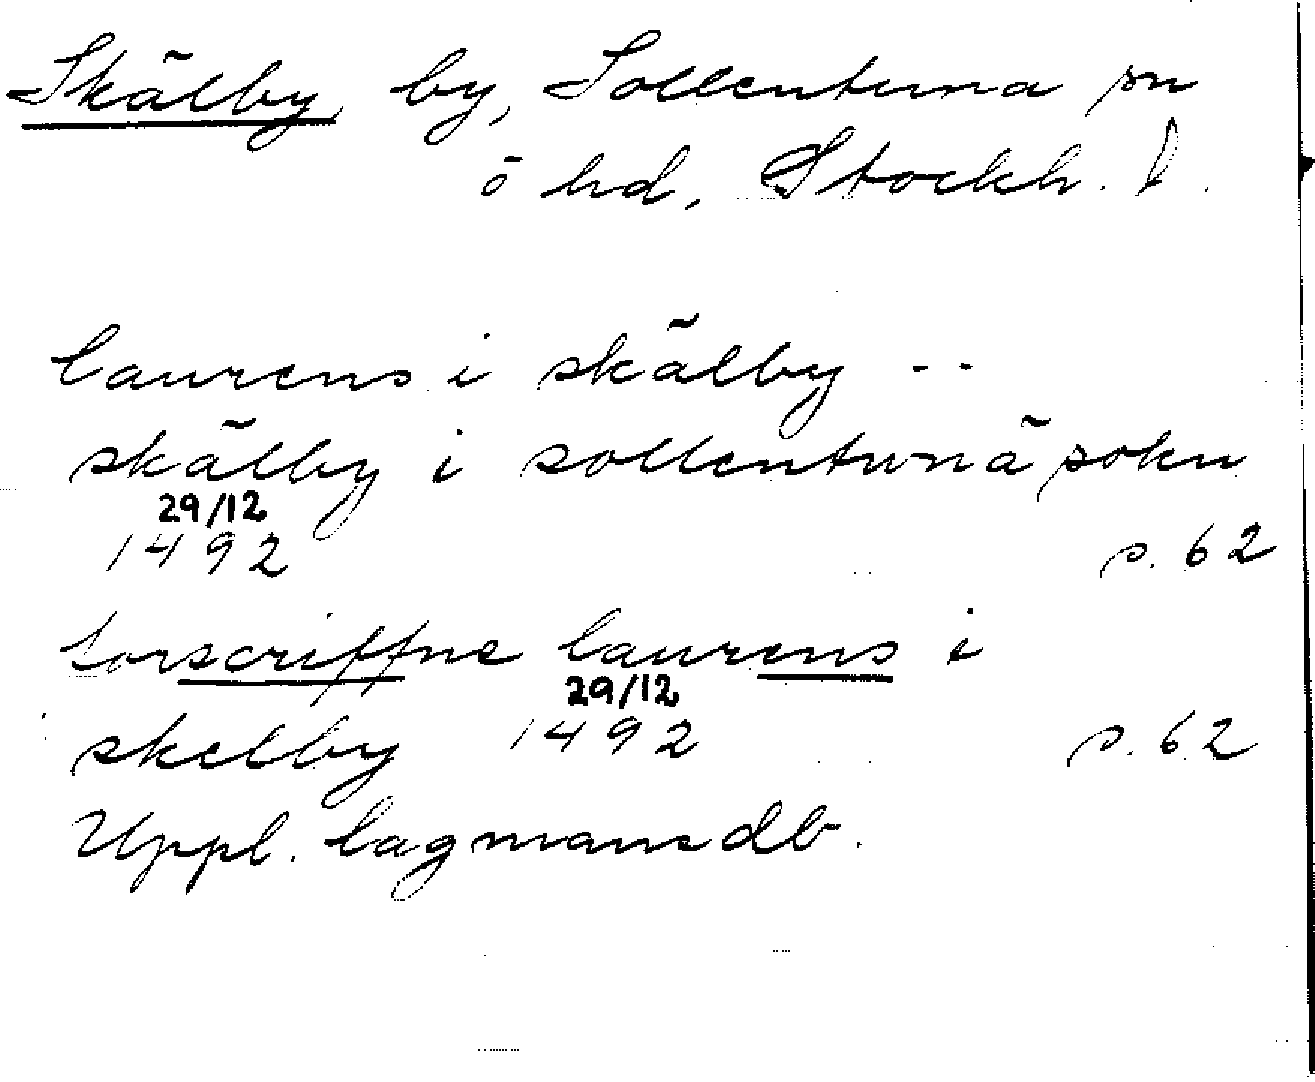 Skälby, by, Sollentuna sn
o hd, Stockh. l.
laurens i skälby --
skälby i sollentwnä sokn
29/12
1492 s. 62
forscriffne laurens i
29/12
skelby 1492 s. 62
Uppl. lagmansdb.